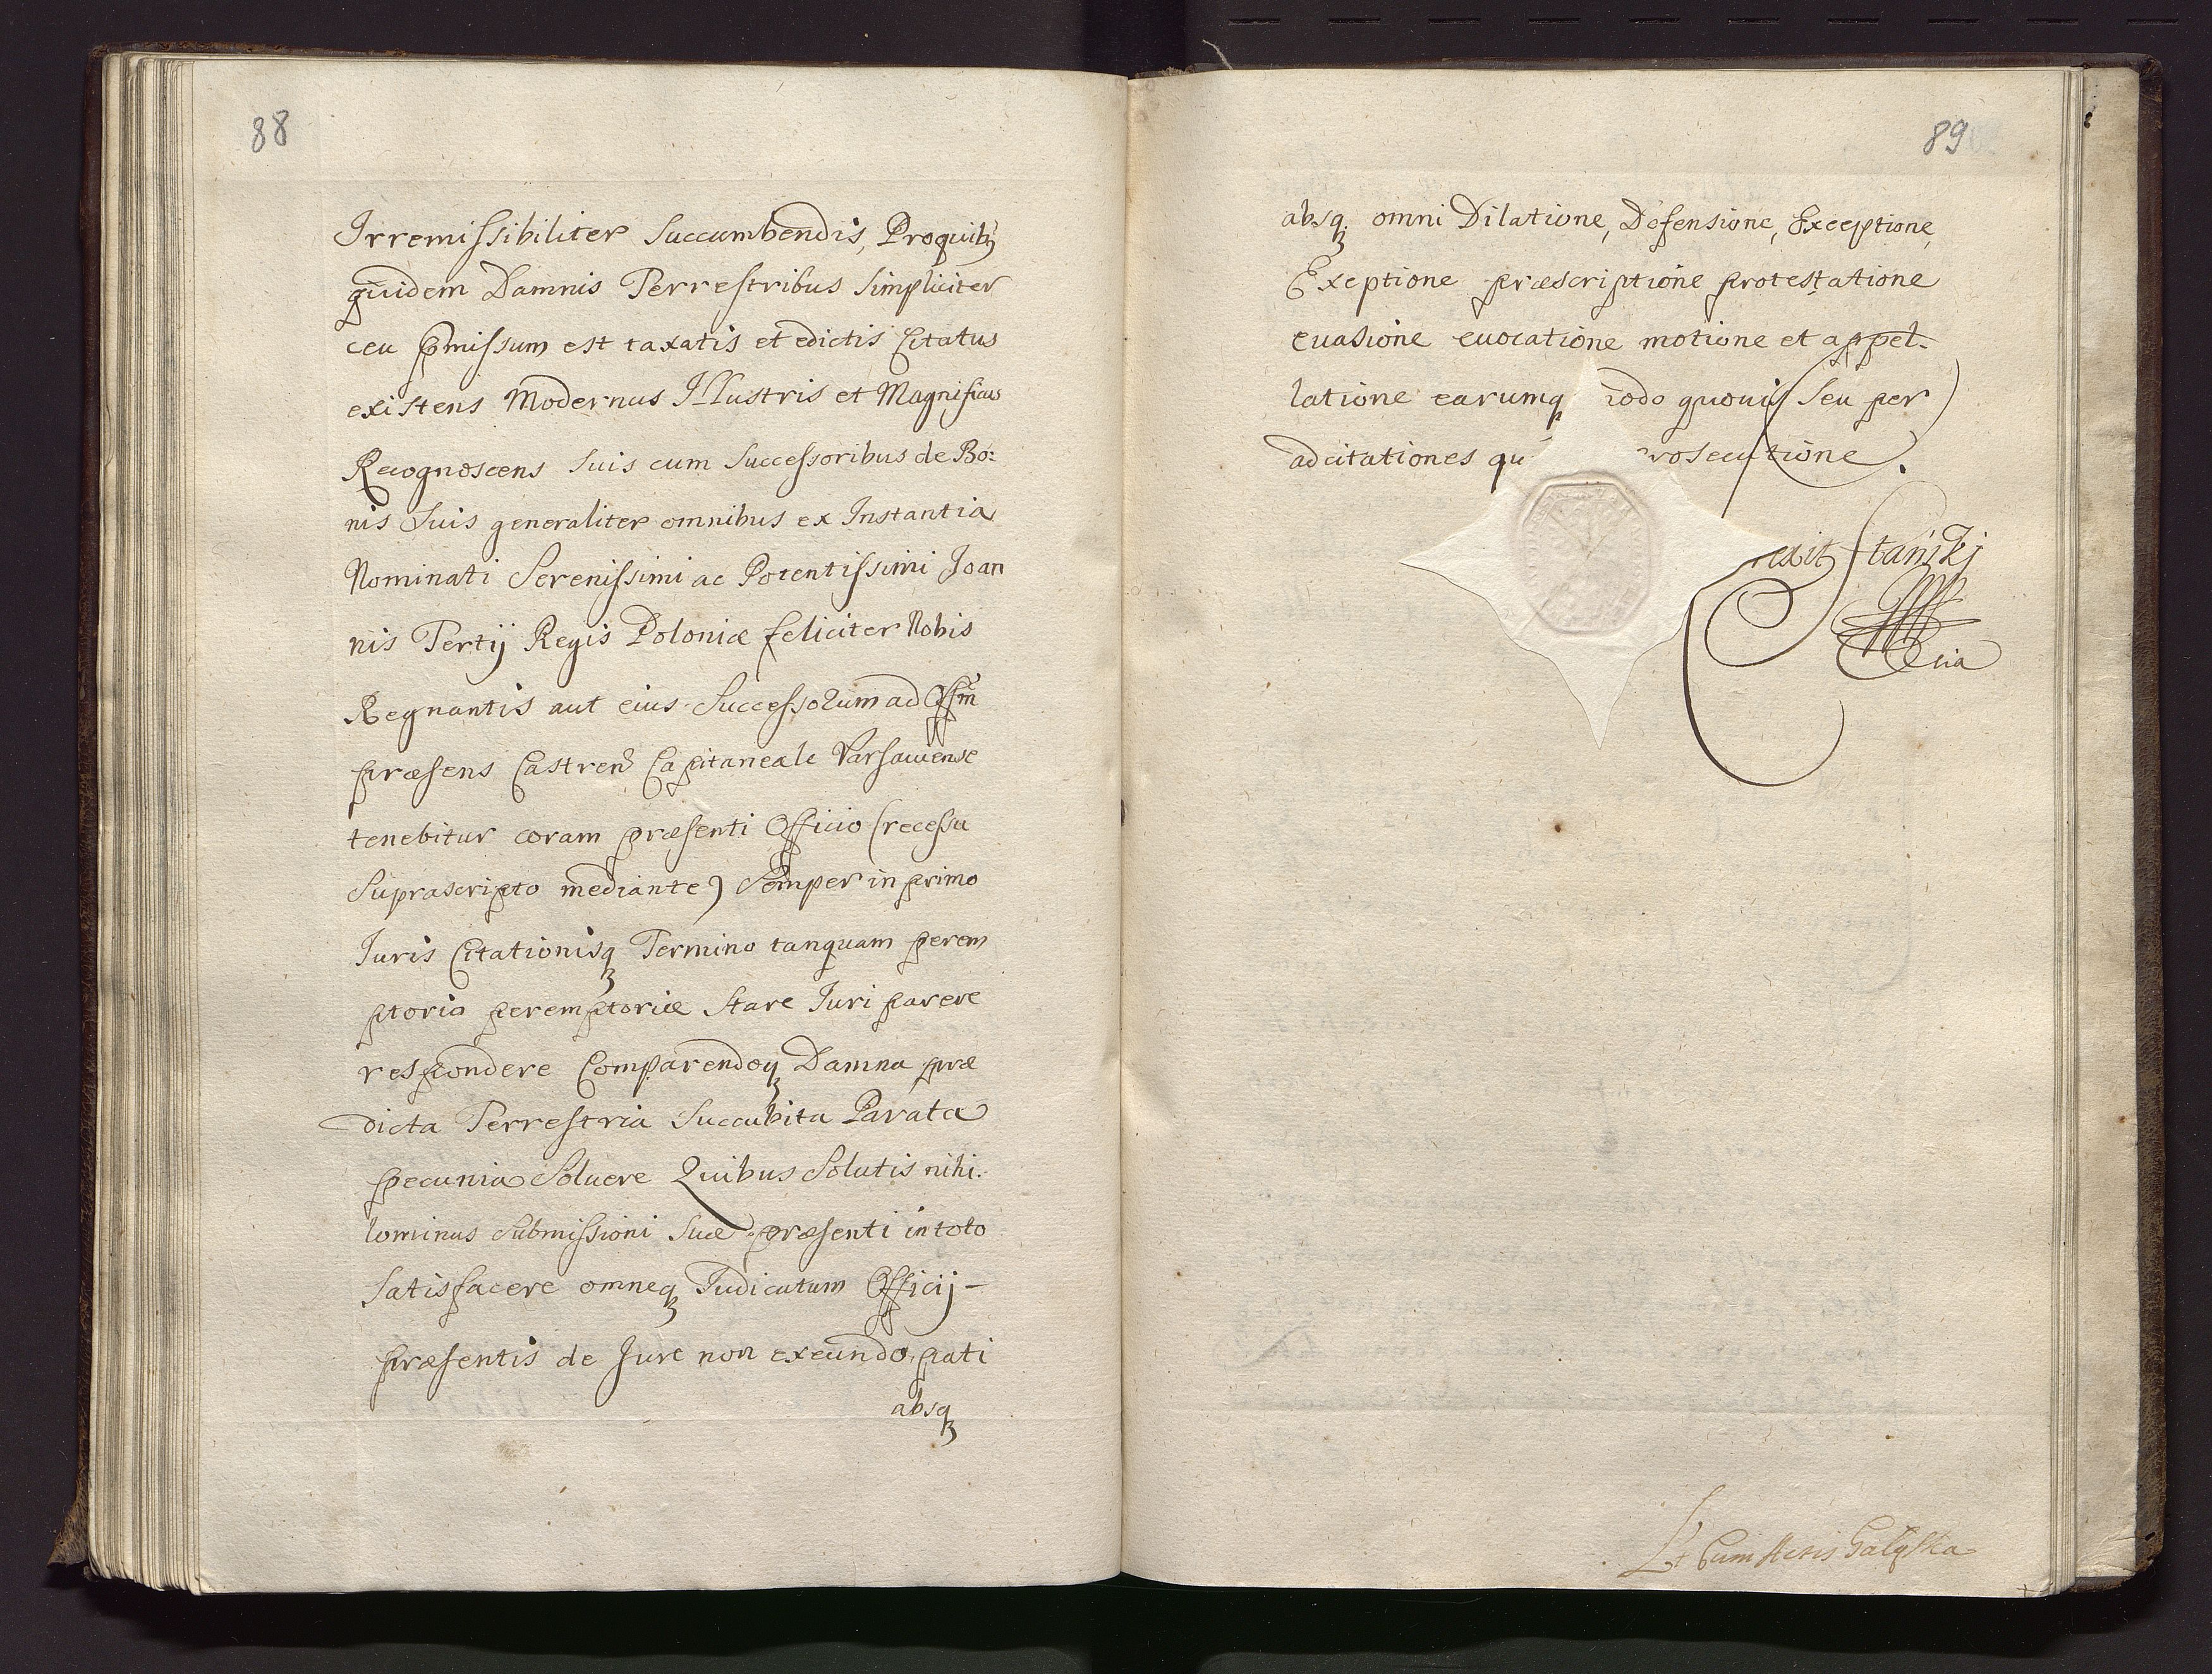 88
Irremissibiliter Succumbendis, Proquibꝫ
quidem Damnis Terrestribus Simpliciter
ceu p̄missum est taxatis et edictis Citatus
existens Modernus Illustris et Magnificus
Recognoscens Suis cum Successoribus de Bo:
nis Suis generaliter omnibus ex Instantia
Nominati Serenissimi ac Potentissimi Joan
nis Tertij Regis Poloniæ feliciter Nobis
Regnantis aut eius Successorum ad Offm̄
præsens Castren Capitaneale Varsauiense
tenebitur coram præsenti Officio (recessu
Suprascripto mediante) Semper in primo
Juris Citationisqꝫ Termino tanquam perem
ptorio peremptoriæ Stare Juri parere
respondere Comparendoqꝫ Damna præ
dicta Terrestria Succubita Parata
pecunia Soluere Quibus Solutis nihi.
lominus Submissioni Suæ præsenti in toto
Satisfacere omneqꝫ Judicatum Officij -
præsentis de Jure non exeundo pati
absqꝫ
89
absqꝫ omni Dilatione, Defensione, Exceptione,
Exeptione præscriptione protestatione
euasione euocatione motione et appel-
latione earumq iodo quouis Seu per
adcitationes qu rosecutione.